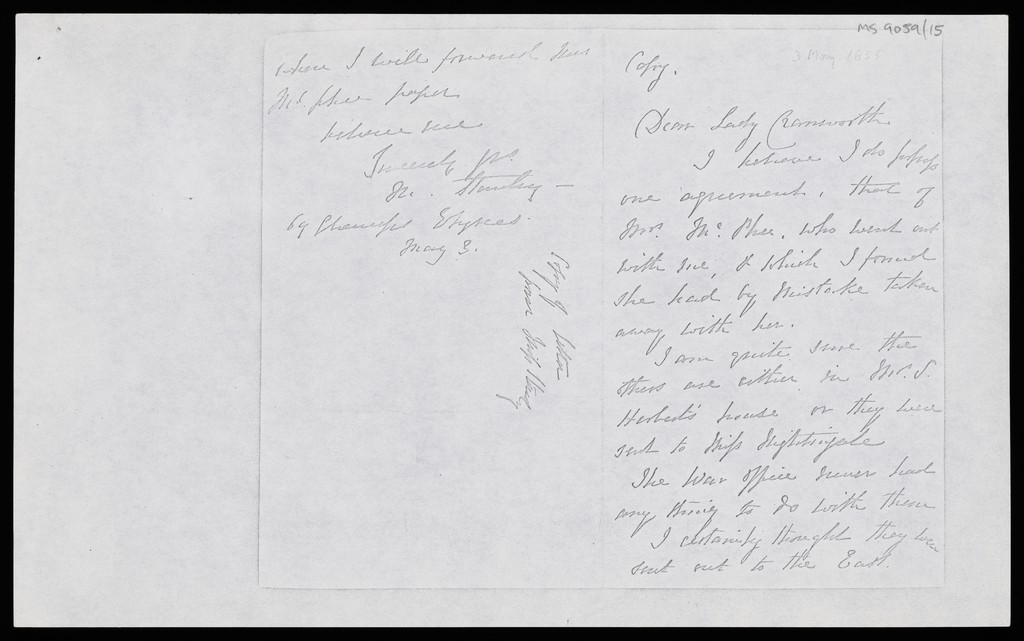 MS 9059/15
3 May 1855
Copy.
Dear Lady Cranworth
I believe I do possess
one agreement, that of
Mrs. Mc. Phee, who went out
with me, & which I found
she had by mistake taken
away with her.
I am quite sure the
others are either in Mr. S.
Herbert's house or they were
sent to Miss Nightingale
The War Office never had
any thing to do with them
I certainly thought they were
sent out to the East.
where I will forward Mrs
Mc. Phee paper
believe me
Sincerely yrs.
M. Stanley —
May 3.
Copy of letter
from Miss Stanley